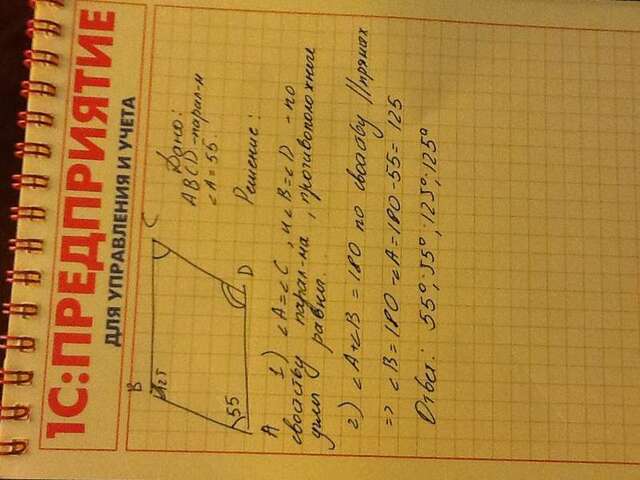 1С:ПРЕДПРИЯТИЕ
ДЛЯ УПРАВЛЕНИЯ И УЧЕТА
B
C
125
55
A
D
Дано:
ABCD - парал-м
∠A=55.
Решение:
1) ∠A=∠C , и ∠B=∠D - по
свойству парал-ма , противоположные
углы равны.
2) ∠A+∠B = 180 по свойству // прямых
=> ∠B = 180 - ∠A = 180 - 55 = 125
Ответ: 55°, 55°, 125°, 125°